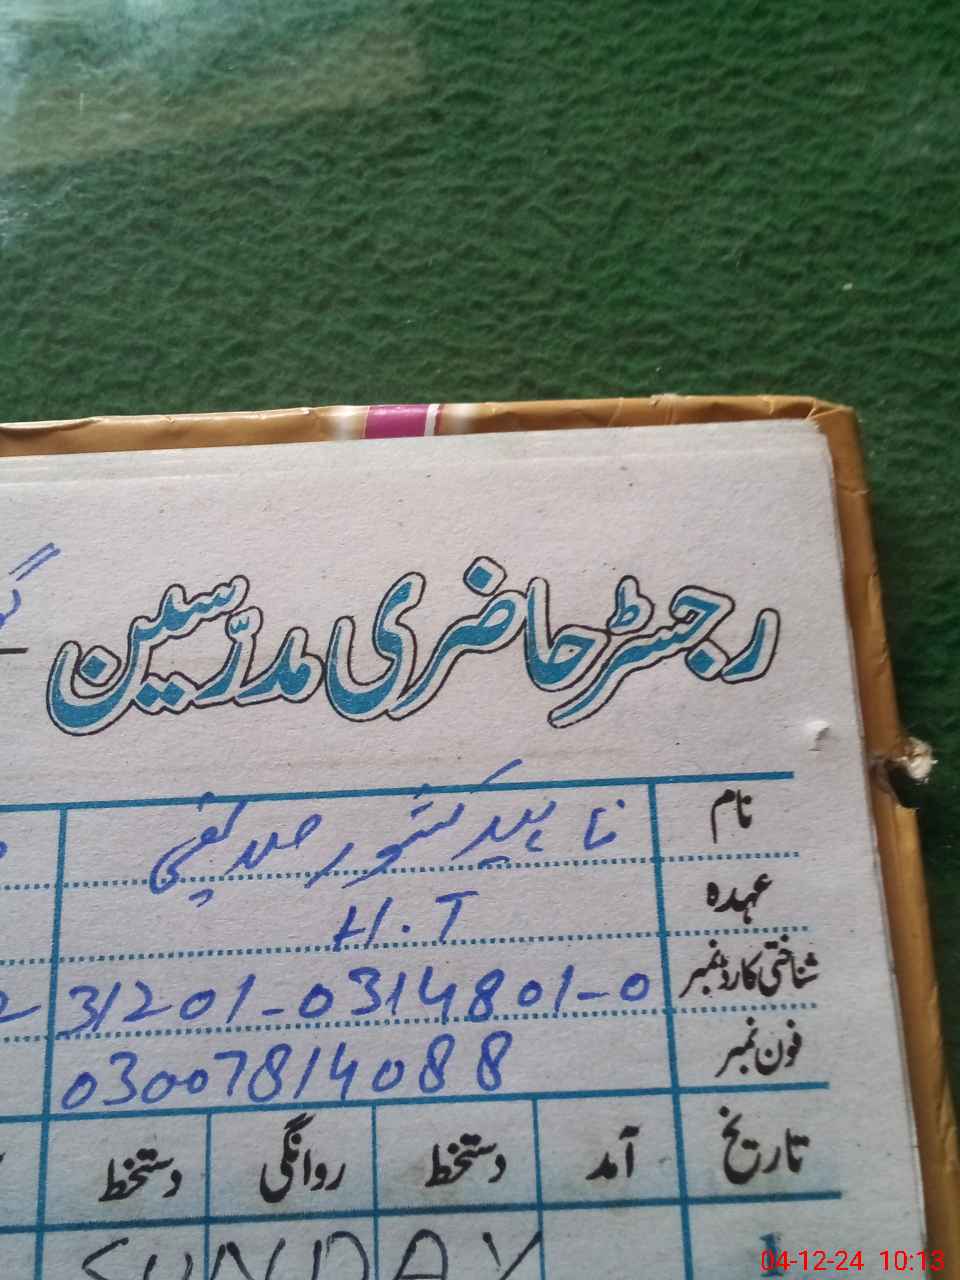 رجسٹر حاضری مدرّسین
نام ناہید کشور صدیقی
عہدہ H.T
شناختی کارڈ نمبر 31201-0314801-0
فون نمبر 03007814088
تاریخ آمد دستخط روانگی دستخط
1 SUNDAY
04-12-24 10:13